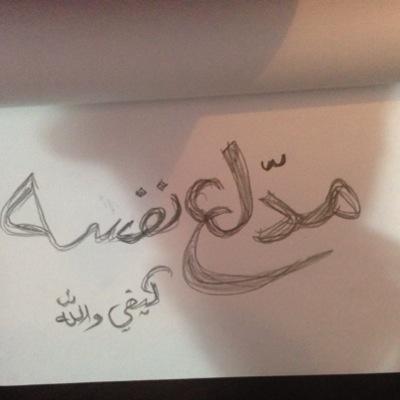 مدّلع نفسه
كيفي والله